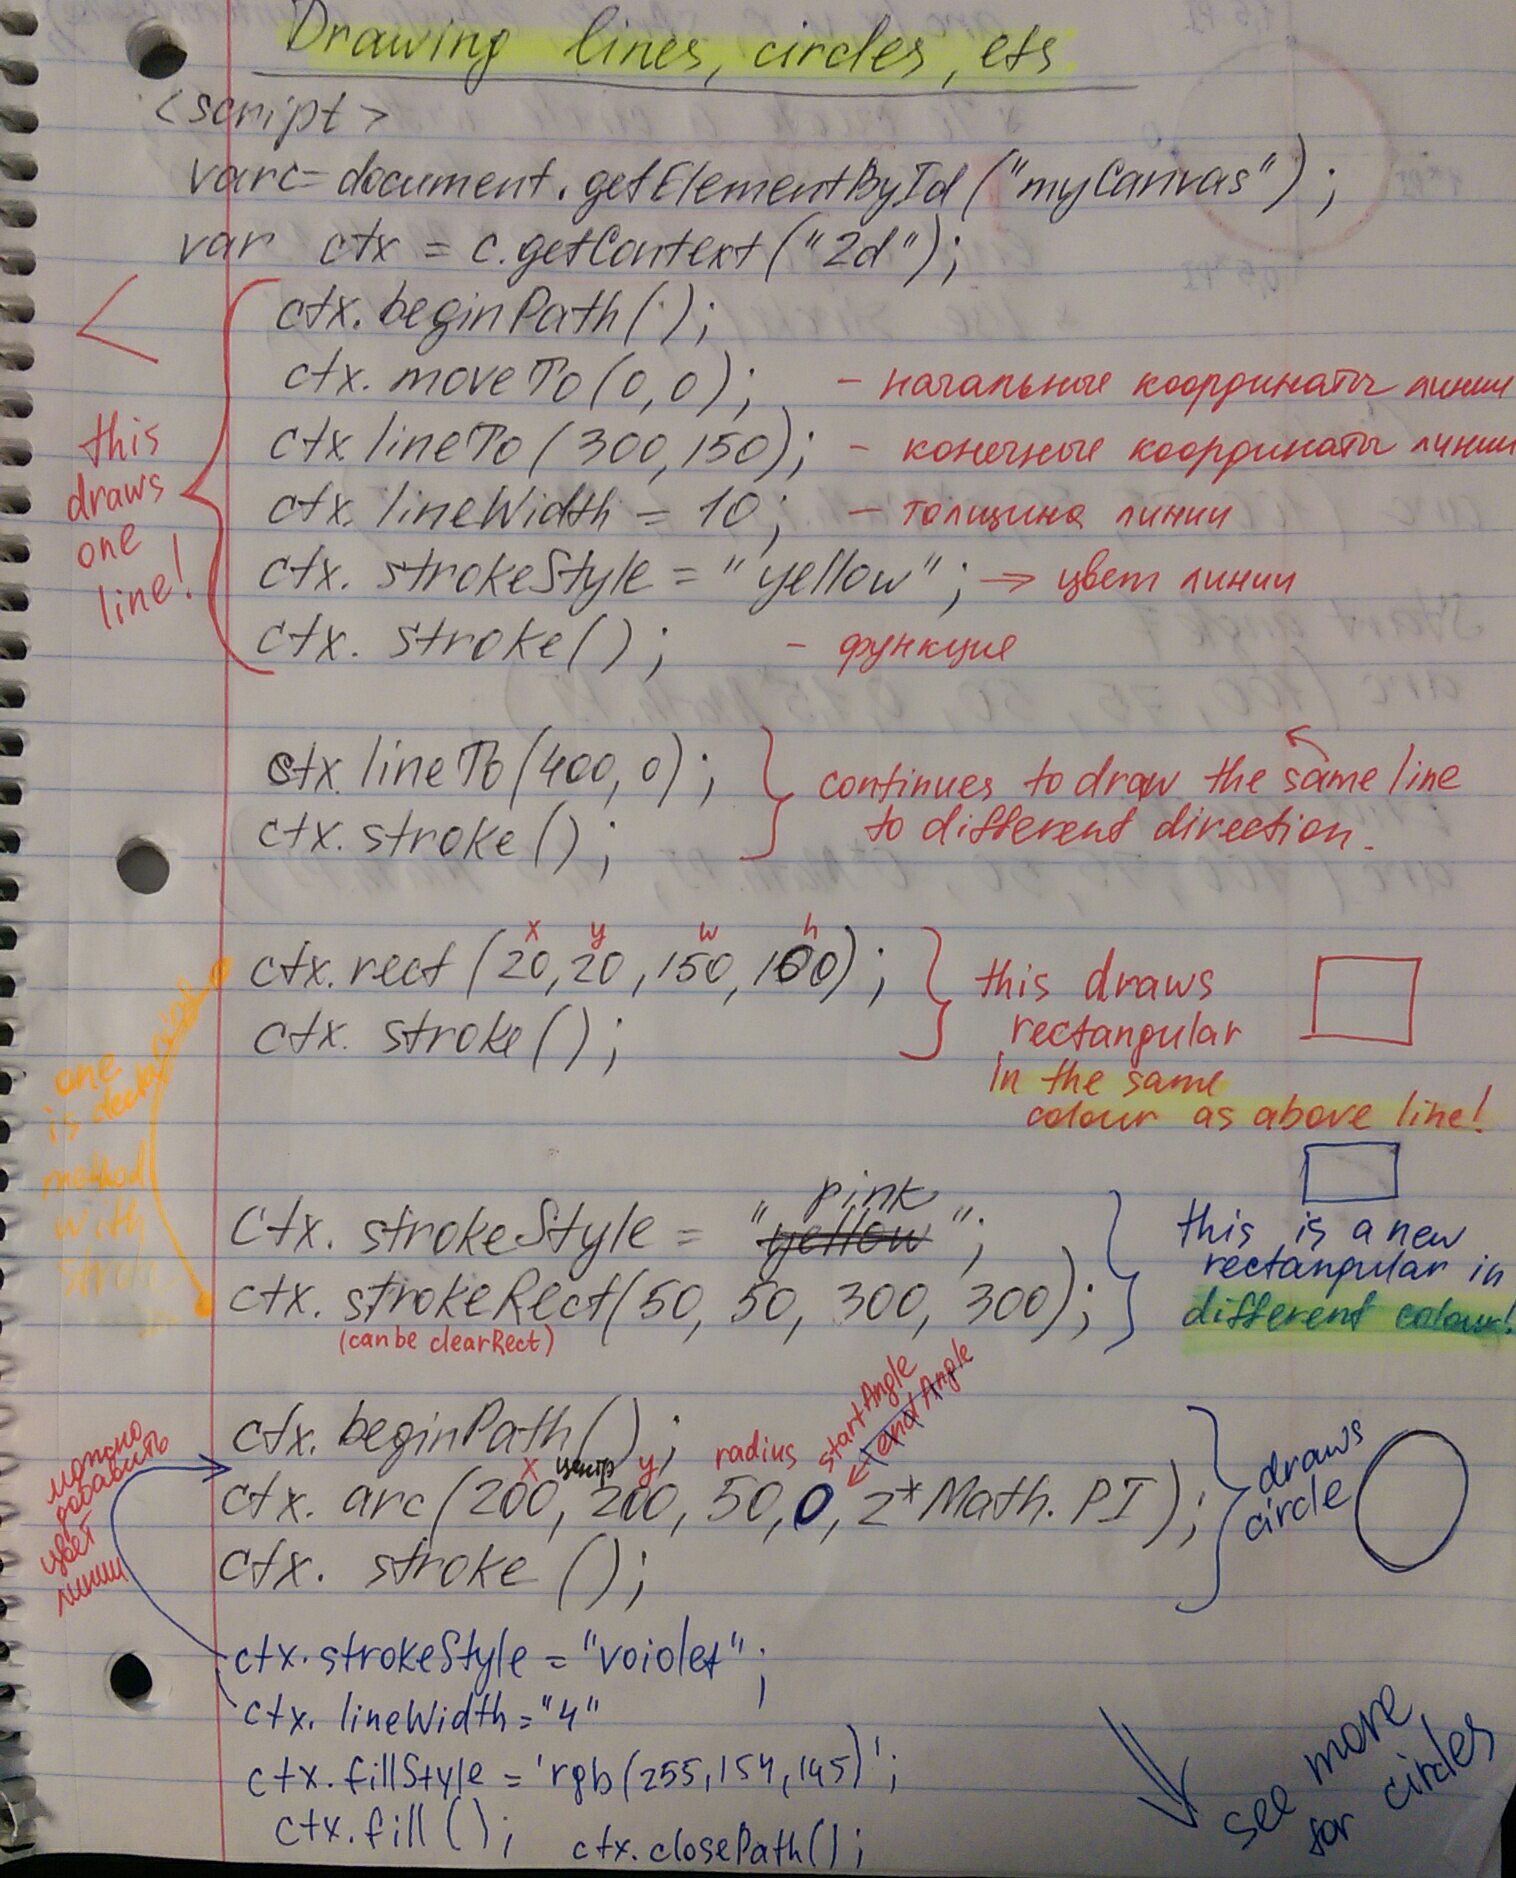 Drawing lines, circles, ets
<script>
var c= document.getElementById("myCanvas");
var ctx = c.getContext("2d");
ctx.beginPath();
ctx.moveTo(0,0); - начальные координаты линии
ctx.lineTo(300,150); - конечные координаты линии
ctx.lineWidth = 10; - толщина линии
ctx.strokeStyle = "yellow"; → цвет линии
ctx.stroke(); - функция
this
draws
one
line!
ctx.lineTo(400,0);
ctx.stroke();
continues to draw the same line
to different direction.
x y w h
ctx.rect(20,20,150,100);
ctx.stroke();
this draws
rectangular
in the same
colour as above line!
one
is
method
with
pink
ctx.strokeStyle = "yellow";
ctx.strokeRect(50, 50, 300, 300);
(can be clearRect)
this is a new
rectangular in
different colour!
ctx.beginPath();
x центр y radius startAngle
endAngle
ctx.arc(200, 200, 50, 0, 2*Math.PI);
ctx.stroke();
draws
circle
можно
добавить
цвет
линии
ctx.strokeStyle = "voiolet";
ctx.lineWidth="4"
ctx.fillStyle = 'rgb(255,154,145)';
ctx.fill(); ctx.closePath();
see more
for circles